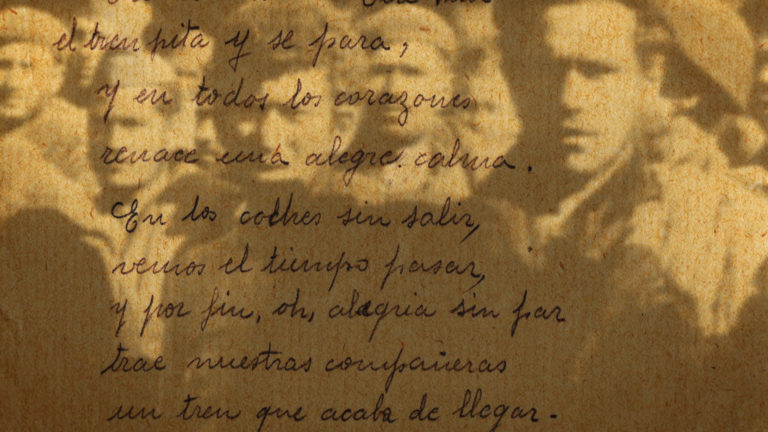 el tren pita y se para,
y en todos los corazones
renace una alegre calma.
En los coches sin salir,
vemos el tiempo pasar,
y por fin, oh, alegria sin par
trae nuestras compañeras
un tren que acaba de llegar.-